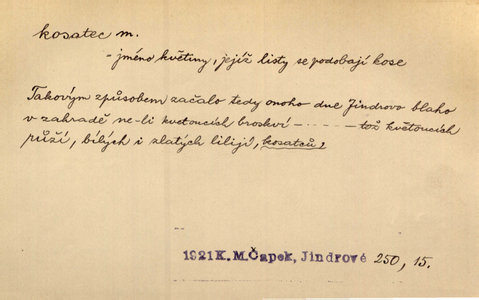 kosatec m.
- jméno květiny, jejíž listy se podobají kose
Takovým způsobem začalo tedy onoho dne Jindrovo blaho
v zahradě ne-li kvetoucích broskví - - - - - - - tož květoucích
růží, bílých i zlatých lilijí, kosatců,
1921 K. M. Čapek, Jindrové 250, 15.